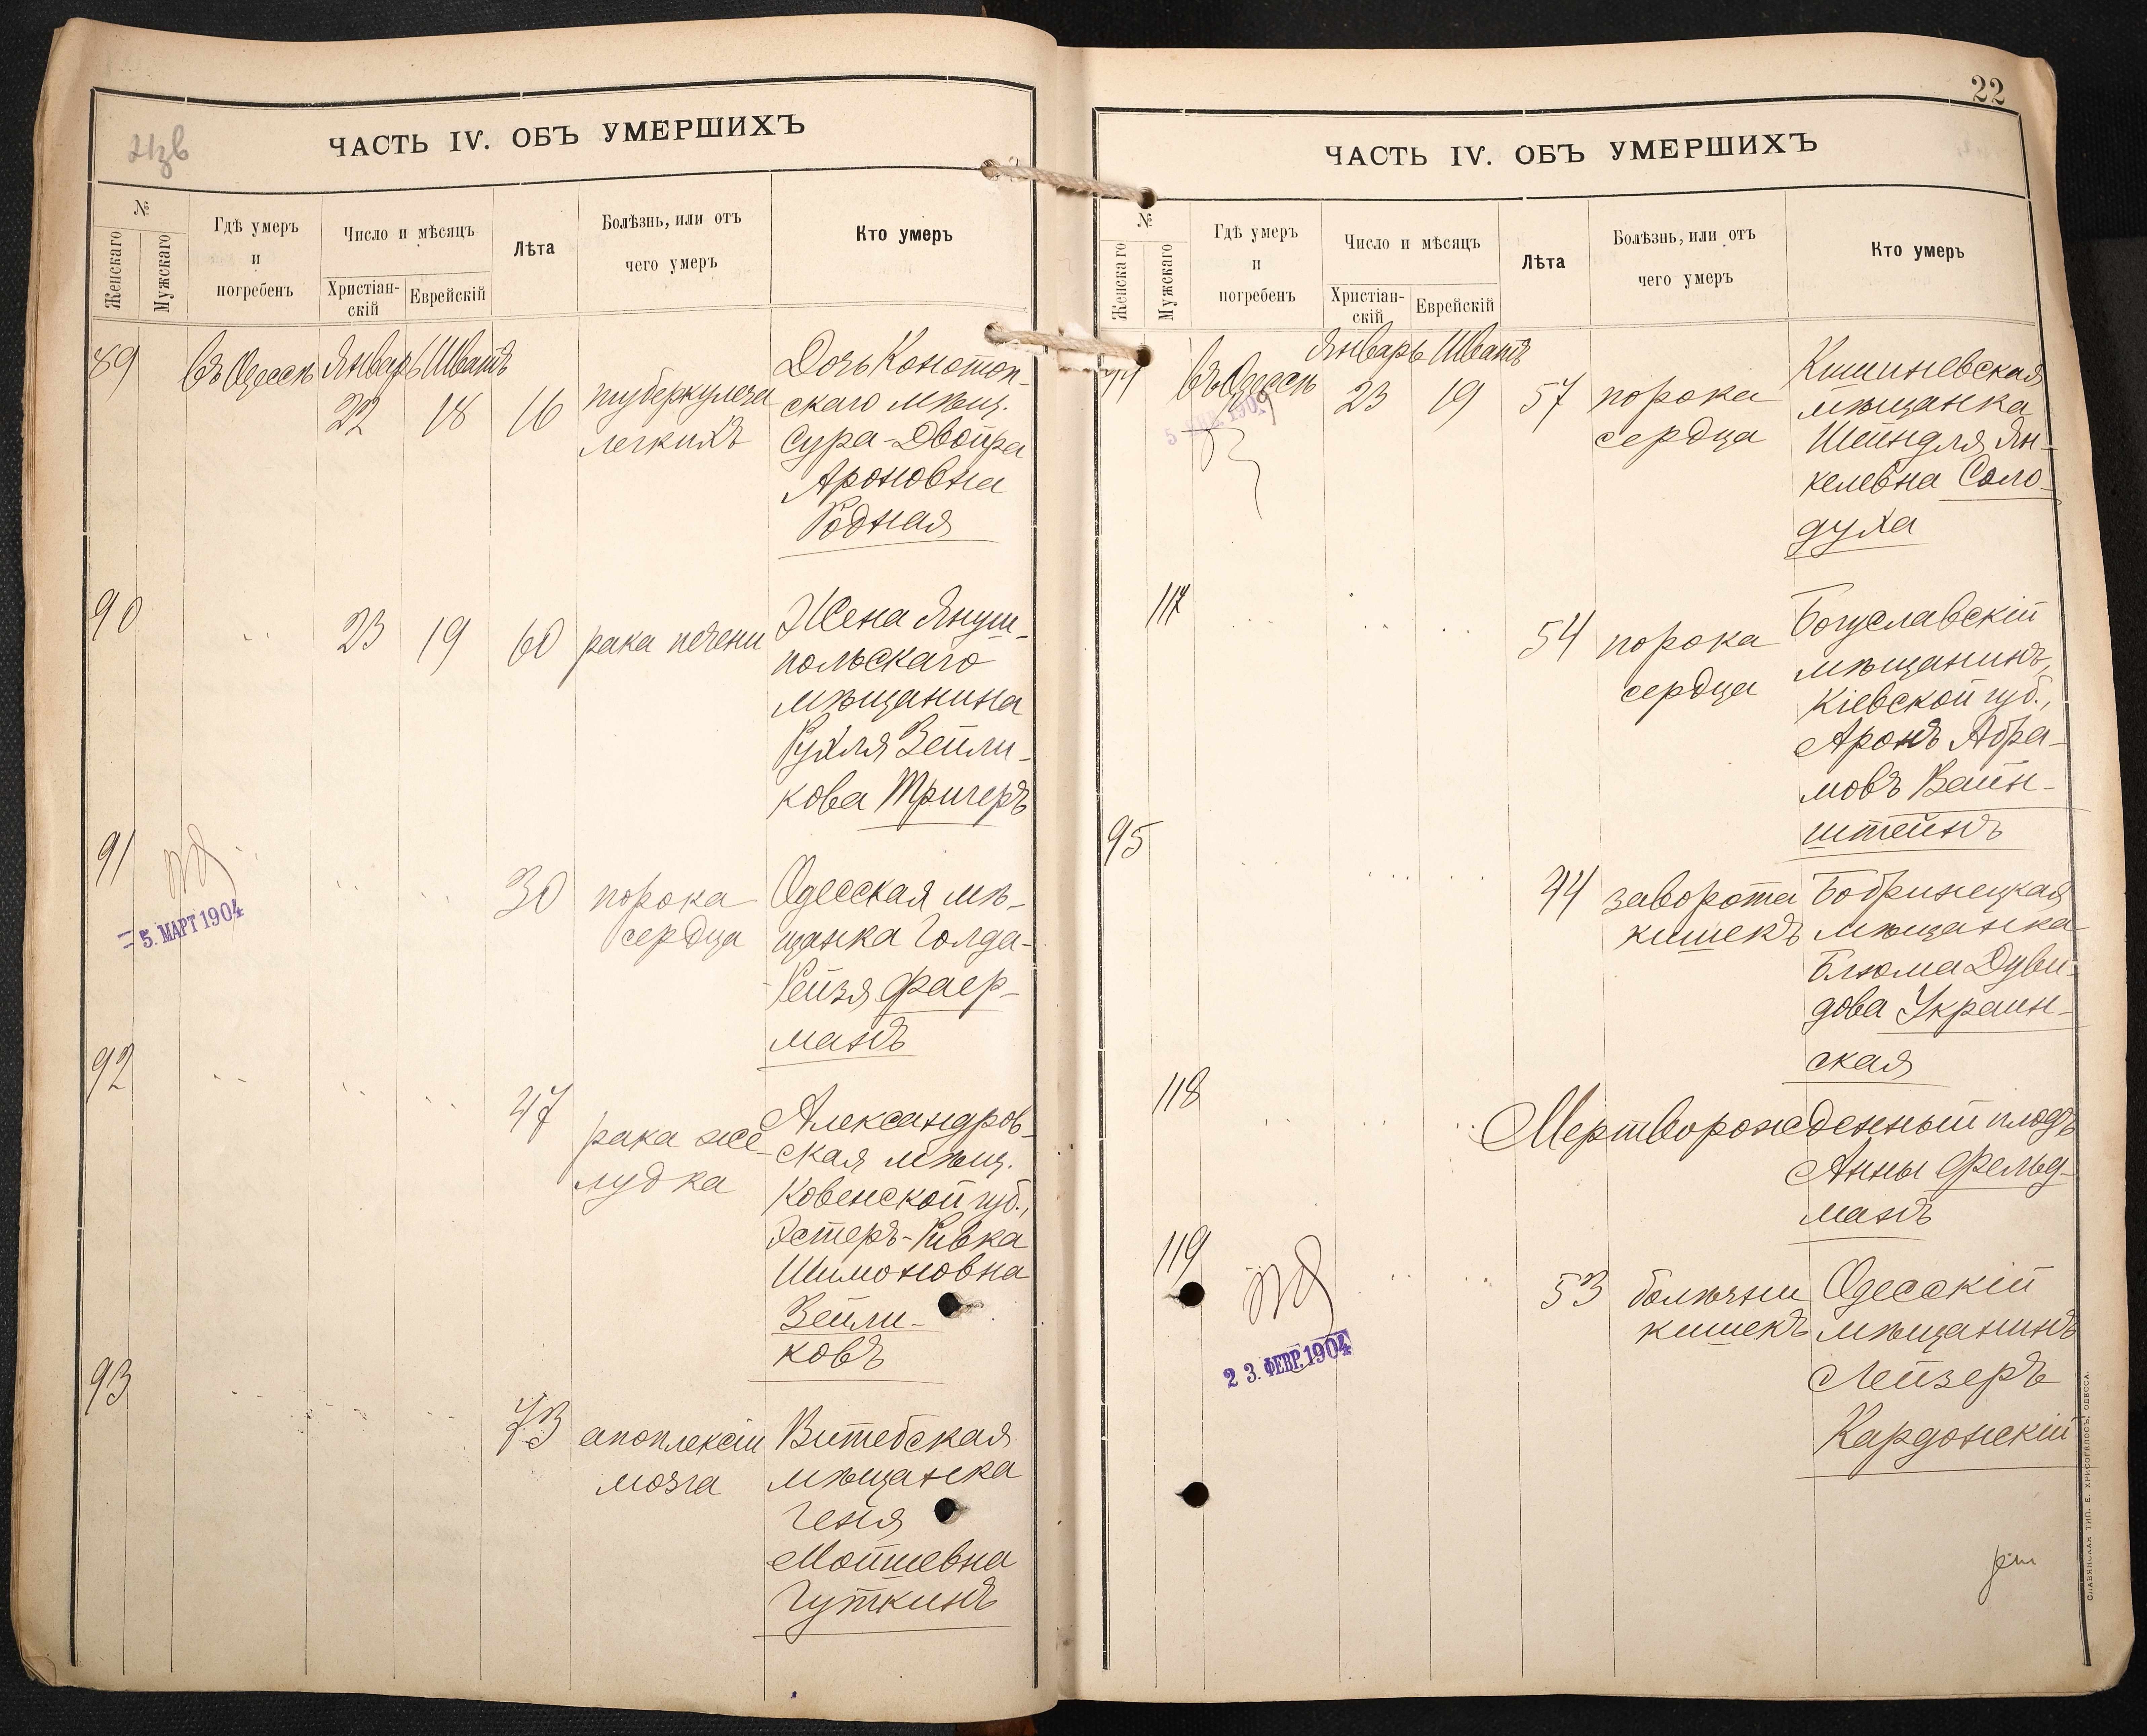 ЧАСТЬ IV. ОБЪ УМЕРШИХЪ
№
Женскаго
Мужскаго
Гдѣ умеръ
и
погребенъ
Число и мѣсяцъ
Христіан-
скій
Еврейскій
Лѣта
Болѣзнь, или отъ
чего умеръ
Кто умеръ
89 въ Одессѣ Январь Шватъ Дочь Конотоп-
22 18 16 туберкулеза скаго мѣщ.
легкихъ Сура-Двойра
Ароновна
Родная
90 23 19 60 рака печени Жена Януш-
польскаго
мѣщанина
Рухля Зейли-
кова Тригеръ
91 30 порока Одесская мѣ-
сердца щанка Голда-
Рейзя Фаер-
манъ
- 5. МАРТ 1904
92 47 рака же- Александров-
лудка ская мѣщ.
Ковенской губ.,
Эстеръ-Ривка
Шимоновна
Зейли-
ковъ
93 73 апоплексіи Витебская
мозга мѣщанка
Геня
Мойшевна
Гуткинъ
22
ЧАСТЬ IV. ОБЪ УМЕРШИХЪ
№
Женскаго
Мужскаго
Гдѣ умеръ
и
погребенъ
Число и мѣсяцъ
Христіан-
скій
Еврейскій
Лѣта
Болѣзнь, или отъ
чего умеръ
Кто умеръ
94 въ Одессѣ Январь Шватъ Кишиневская
23 19 57 порока мѣщанка
сердца Шейндля Ян-
келевна Соло-
духа
117 54 порока Богуславскій
сердца мѣщанинъ,
Кіевской губ.,
Аронъ Абра-
мовъ Вайн-
штейнъ
95 44 заворота Бобринецкая
кишекъ мѣщанка
Блюма Дуви-
дова Украин-
ская
118 Мертворожденный плодъ
Анны Фельд-
манъ
119 53 болѣзни Одесскій
кишекъ мѣщанинъ
Лейзеръ
Кардонскій
2 3. ФЕВР. 1904
СЛАВЯНСКАЯ ТИП. Е. ХРИСОГЕЛОСЪ, ОДЕССА.